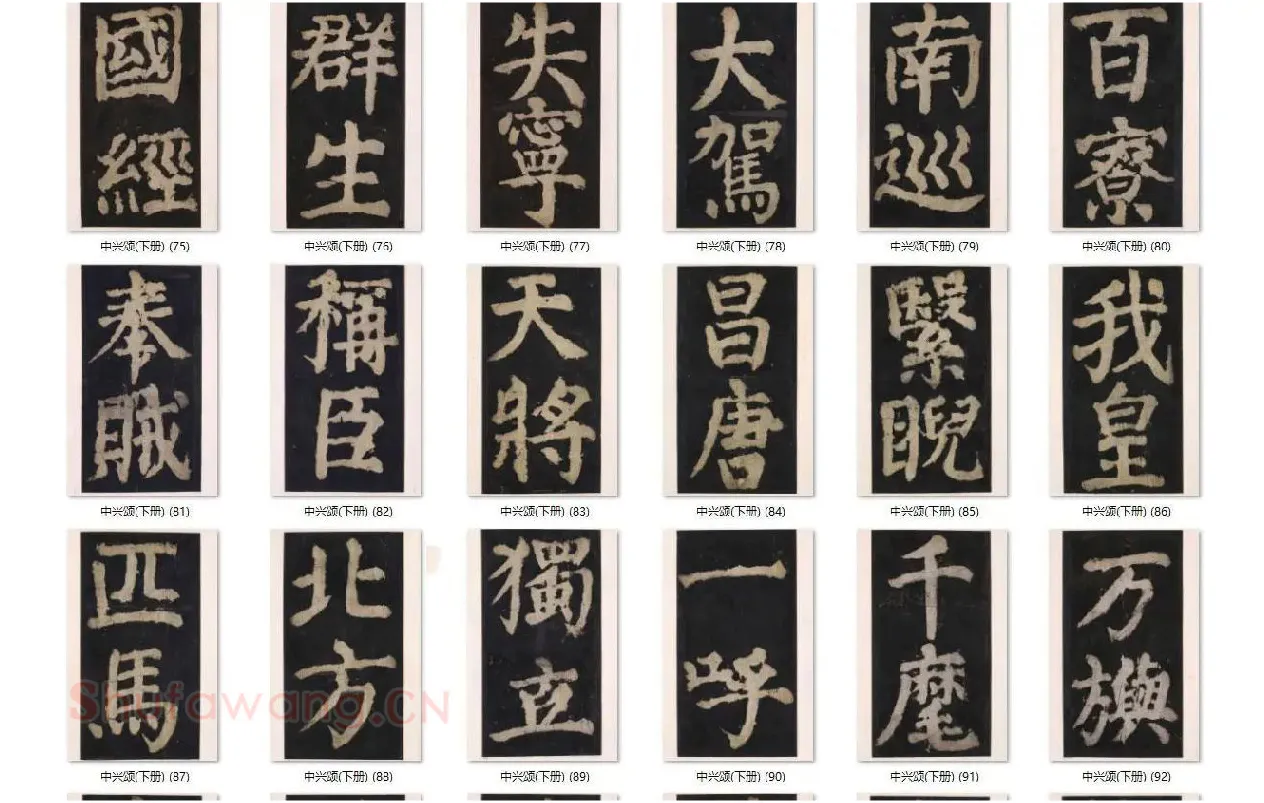 國 群 失 大 南 百
經 生 寧 駕 巡 寮
中兴颂(下册) (75) 中兴颂(下册) (76) 中兴颂(下册) (77) 中兴颂(下册) (78) 中兴颂(下册) (79) 中兴颂(下册) (80)
奉 稱 天 昌 繄 我
賊 臣 將 唐 睨 皇
中兴颂(下册) (81) 中兴颂(下册) (82) 中兴颂(下册) (83) 中兴颂(下册) (84) 中兴颂(下册) (85) 中兴颂(下册) (86)
匹 北 獨 一 千 万
馬 方 立 呼 麾 旟
Shufawang.CN
中兴颂(下册) (87) 中兴颂(下册) (88) 中兴颂(下册) (89) 中兴颂(下册) (90) 中兴颂(下册) (91) 中兴颂(下册) (92)